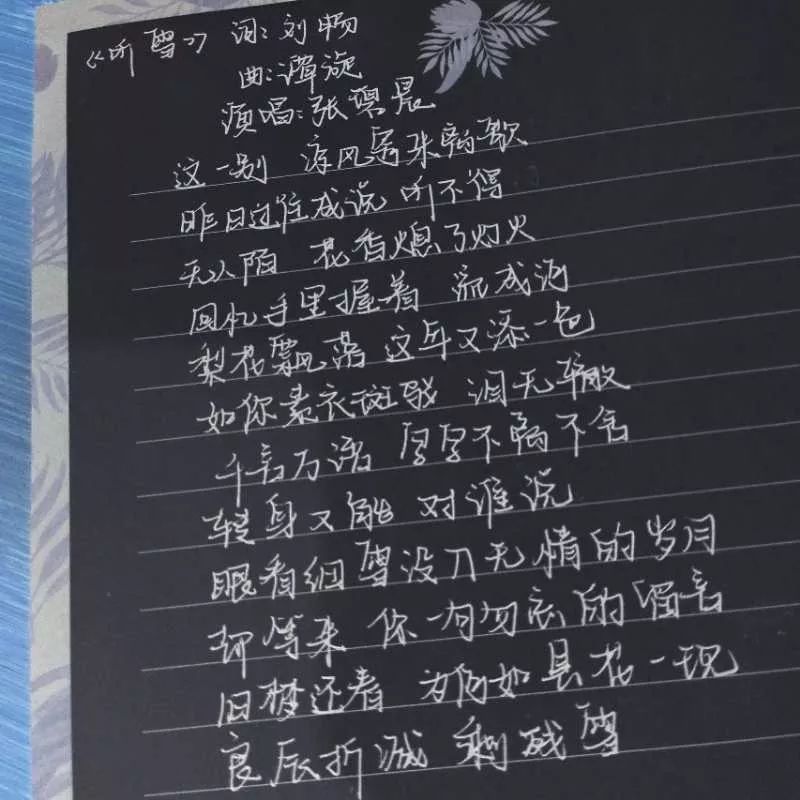 《听雪》 词:刘畅
曲:谭旋
演唱:张碧晨
这一别 凉风寄来离歌
昨日过往成说 听不得
无人陌 花香熄了灯火
回札手里握着 流成河
梨花飘落 这年又添一色
如你素衣斑驳 泪无辙
千言万语 字字不离不舍
转身又能 对谁说
眼看细雪没入无情的岁月
却等来 你一句勿忘的留言
旧梦还看 为何如昙花一现
良辰折减 剩残雪